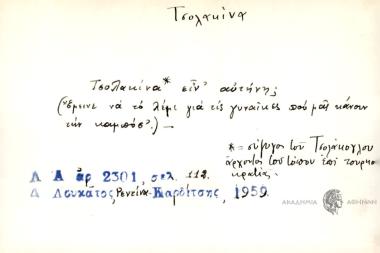 Τσολακίνα
Τσολακίνα* εἶν' αὐτήνη;
(Ἔμεινε νὰ τὸ λέμε γιὰ τὶς γυναῖκες ποὺ μᾶς κάνουν
τὴν καμπόσ.) —
* = σύζυγος τοῦ Τσολάκογλου
ἄρχοντος τοῦ τόπου ἐπὶ τουρκο
κρατίας
Λ Α ἀρ 2301, σελ. 112.
Δ Λουκᾶτος, Ρεντίνα Καρδίτσης, 1959
ΑΚΑΔΗΜΙΑ ΑΘΗΝΩΝ